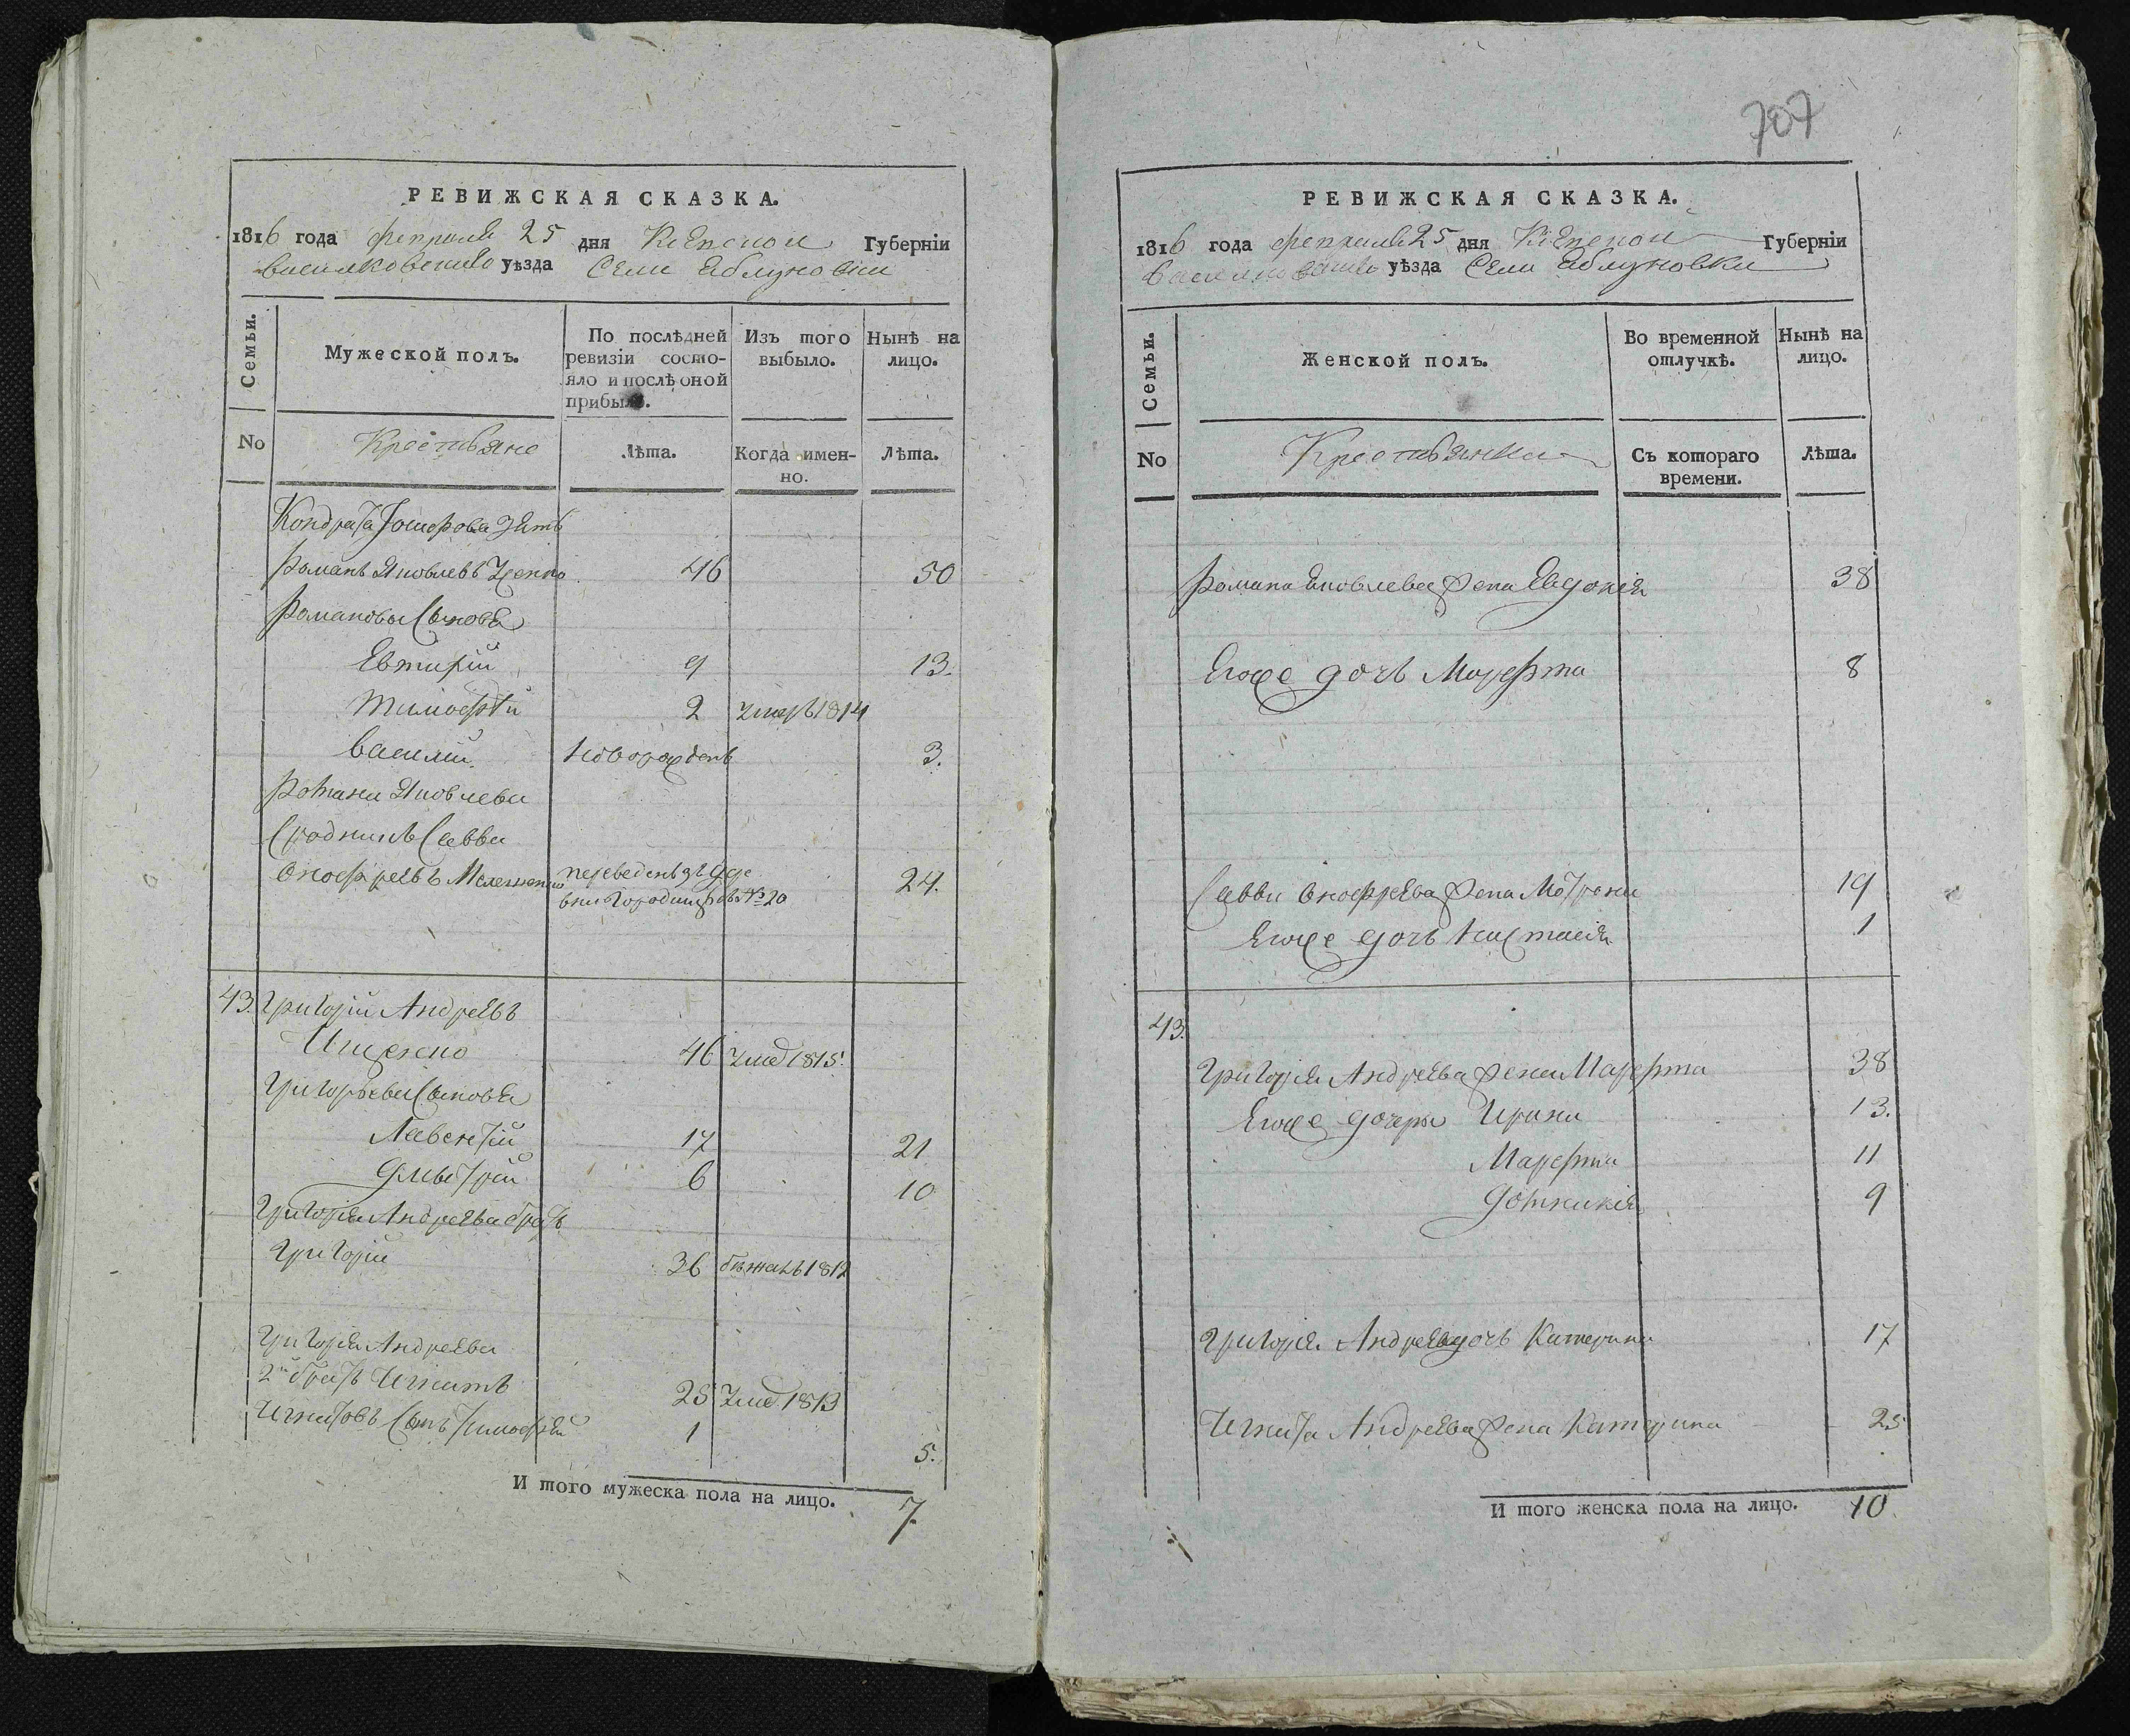 РЕВИЖСКАЯ СКАЗКА.
1816 года февраля 25 дня Кіевской Губерніи
васильковскаго уѣзда Села Яблуновки
Семьи.
Мужеской полъ.
По послѣдней
ревизіи состо-
яло и послѣ оной
прибыло.
Изъ того
выбыло.
Нынѣ на
лицо.
No
Крестьяне
Лѣта.
Когда имен-
но.
Лѣта.
Кондрата зять
Романъ Яковлевъ 46 50
Романовы Сыновья
Евтихій 9 13.
Тимофѣй 2 умеръ 1814
Василій новорожденъ 3.
Романа Яковлева
Сродникъ Савва
Онофреевъ переведенъ 24.
№ 20
43. Григорій Андреевъ
46 умер 1815.
Григорьевы Сыновья
Лавентій 17 21
Дмытрій 6 10
Григорія Андреева братъ
Григорій 36 бежалъ 1812
Григорія Андреева
2й братъ Игнатъ 25 умер 1813
Игнатовъ Сынъ Тимофѣй 1 5.
И того мужеска пола на лицо. 7.
707
РЕВИЖСКАЯ СКАЗКА.
1816 года февраля 25 дня Кіевской Губерніи
Васильковскаго уѣзда Села Яблуновки
Семьи.
Женской полъ.
Во временной
отлучкѣ.
Нынѣ на
лицо.
No
Крестьянки
Съ котораго
времени.
Лѣта.
Романа Яковлева жена Евдокія 38
Егоже дочь Марфта 8
Саввы Онофрѣева жена Мотрона 19
Егоже дочь Настасія 1
43.
Григорія Андреева жена Марфта 38
Егоже дочери Ирина 13.
Марфта 11
Домникія 9
Григорія Андреева дочь Катерина 17
Игната Андреева жена Катерина 25
И того женска пола на лицо. 10